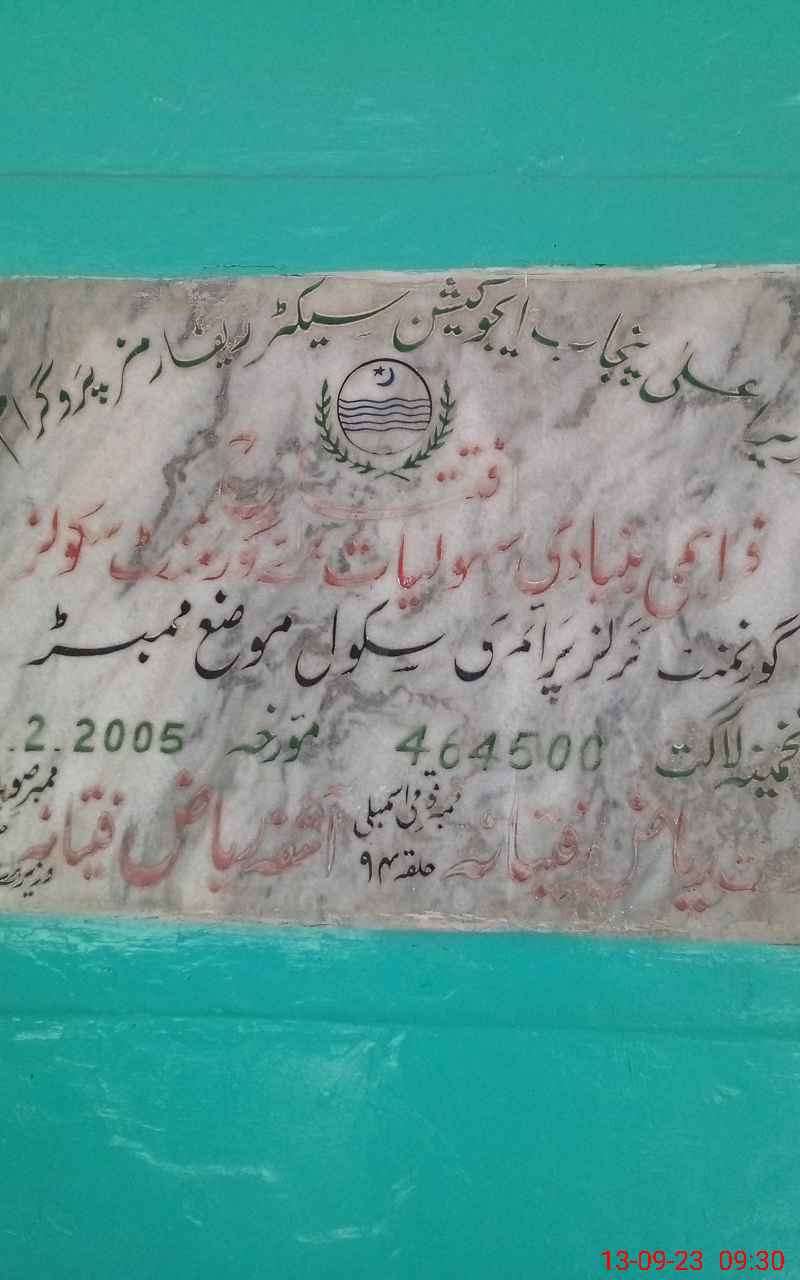 علیٰ پنجاب ایجوکیشن سیکٹر ریفارمز پروگرام
فراہمی بنیادی سہولیات برائے گورنمنٹ سکولز
گورنمنٹ گرلز پرائمری سکول موضع ممبڑ
تخمینہ لاگت 464500 مورخہ .2.2005
ریاض فتیانہ ممبر قومی اسمبلی حلقہ ۹۴ آشفہ ریاض فتیانہ ممبر
13-09-23 09:30